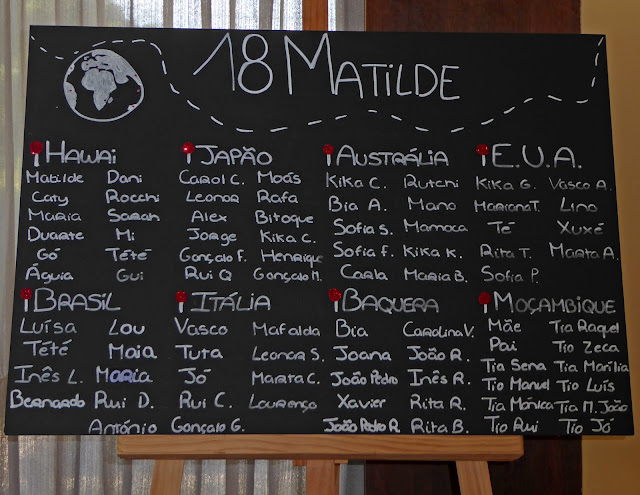 18 MATILDE
HAWAI
Matilde Dani
Caty Rocchi
Maria Sarah
Duarte Mi
Gó Tété
Águia Gui
JAPÃO
Carol C. Moás
Leonor Rafa
Alex Bitoque
Jorge Kika C.
Gonçalo F. Henrique
Rui Q Gonçalo M.
AUSTRÁLIA
Kika C. Rutchi
Bia A. Mano
Sofia S. Mamoca
Sofia F. Kika K.
Carla Maria B.
E.U.A.
Kika G. Vasco A.
Mariana T. Lino
Té Xuxé
Rita T. Marta A.
Sofia P.
BRASIL
Luísa Lou
Tété Maia
Inês L. Maria
Bernardo Rui D.
António
ITÁLIA
Vasco Mafalda
Tuta Leonor S.
Jó Marta C.
Rui C. Lourenço
Gonçalo G.
BAQUERA
Bia Carolina V.
Joana João R.
João Pedro Inês R.
Xavier Rita R.
João Pedro R. Rita B.
MOÇAMBIQUE
Mãe Tia Raquel
Pai Tio Zeca
Tia Sena Tia Marília
Tio Manuel Tio Luís
Tia Mónica Tia M. João
Tio Rui Tio Jó